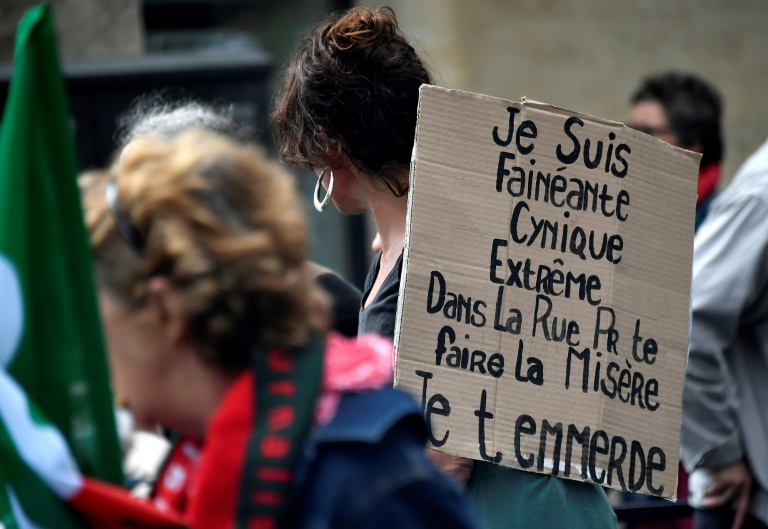 Je Suis
Fainéante
Cynique
Extrême
Dans La Rue Pr te
faire La Misère
Je t emmerde